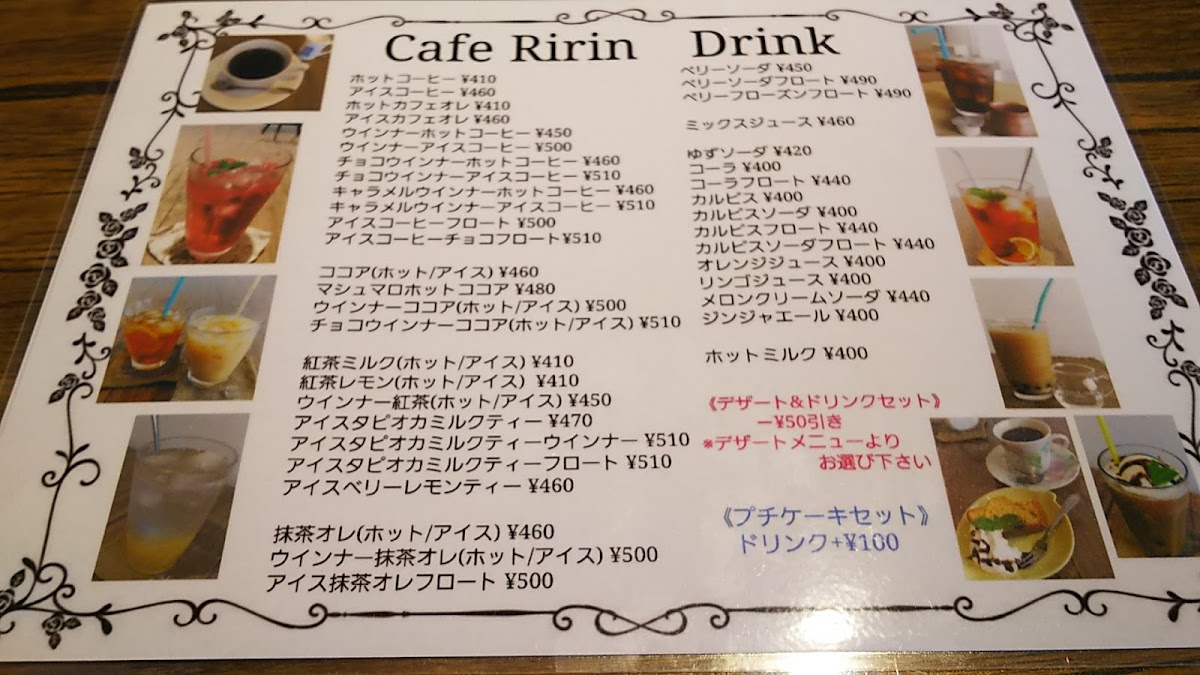 Cafe Ririn Drink
ホットコーヒー ¥410
アイスコーヒー ¥460
ホットカフェオレ ¥410
アイスカフェオレ ¥460
ウインナーホットコーヒー ¥450
ウインナーアイスコーヒー ¥500
チョコウインナーホットコーヒー ¥460
チョコウインナーアイスコーヒー ¥510
キャラメルウインナーホットコーヒー ¥460
キャラメルウインナーアイスコーヒー ¥510
アイスコーヒーフロート ¥500
アイスコーヒーチョコフロート¥510
ココア(ホット/アイス) ¥460
マシュマロホットココア ¥480
ウインナーココア(ホット/アイス) ¥500
チョコウインナーココア(ホット/アイス) ¥510
紅茶ミルク(ホット/アイス) ¥410
紅茶レモン(ホット/アイス) ¥410
ウインナー紅茶(ホット/アイス) ¥450
アイスタピオカミルクティー ¥470
アイスタピオカミルクティーウインナー ¥510
アイスタピオカミルクティーフロート ¥510
アイスベリーレモンティー ¥460
抹茶オレ(ホット/アイス) ¥460
ウインナー抹茶オレ(ホット/アイス) ¥500
アイス抹茶オレフロート ¥500
ベリーソーダ ¥450
ベリーソーダフロート ¥490
ベリーフローズンフロート ¥490
ミックスジュース ¥460
ゆずソーダ ¥420
コーラ ¥400
コーラフロート ¥440
カルピス ¥400
カルピスソーダ ¥400
カルピスフロート ¥440
カルピスソーダフロート ¥440
オレンジジュース ¥400
リンゴジュース ¥400
メロンクリームソーダ ¥440
ジンジャエール ¥400
ホットミルク ¥400
《デザート&ドリンクセット》
ー¥50引き
※デザートメニューより
お選び下さい
《プチケーキセット》
ドリンク+¥100